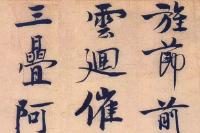 旌節前
雲迴催
三疊阿